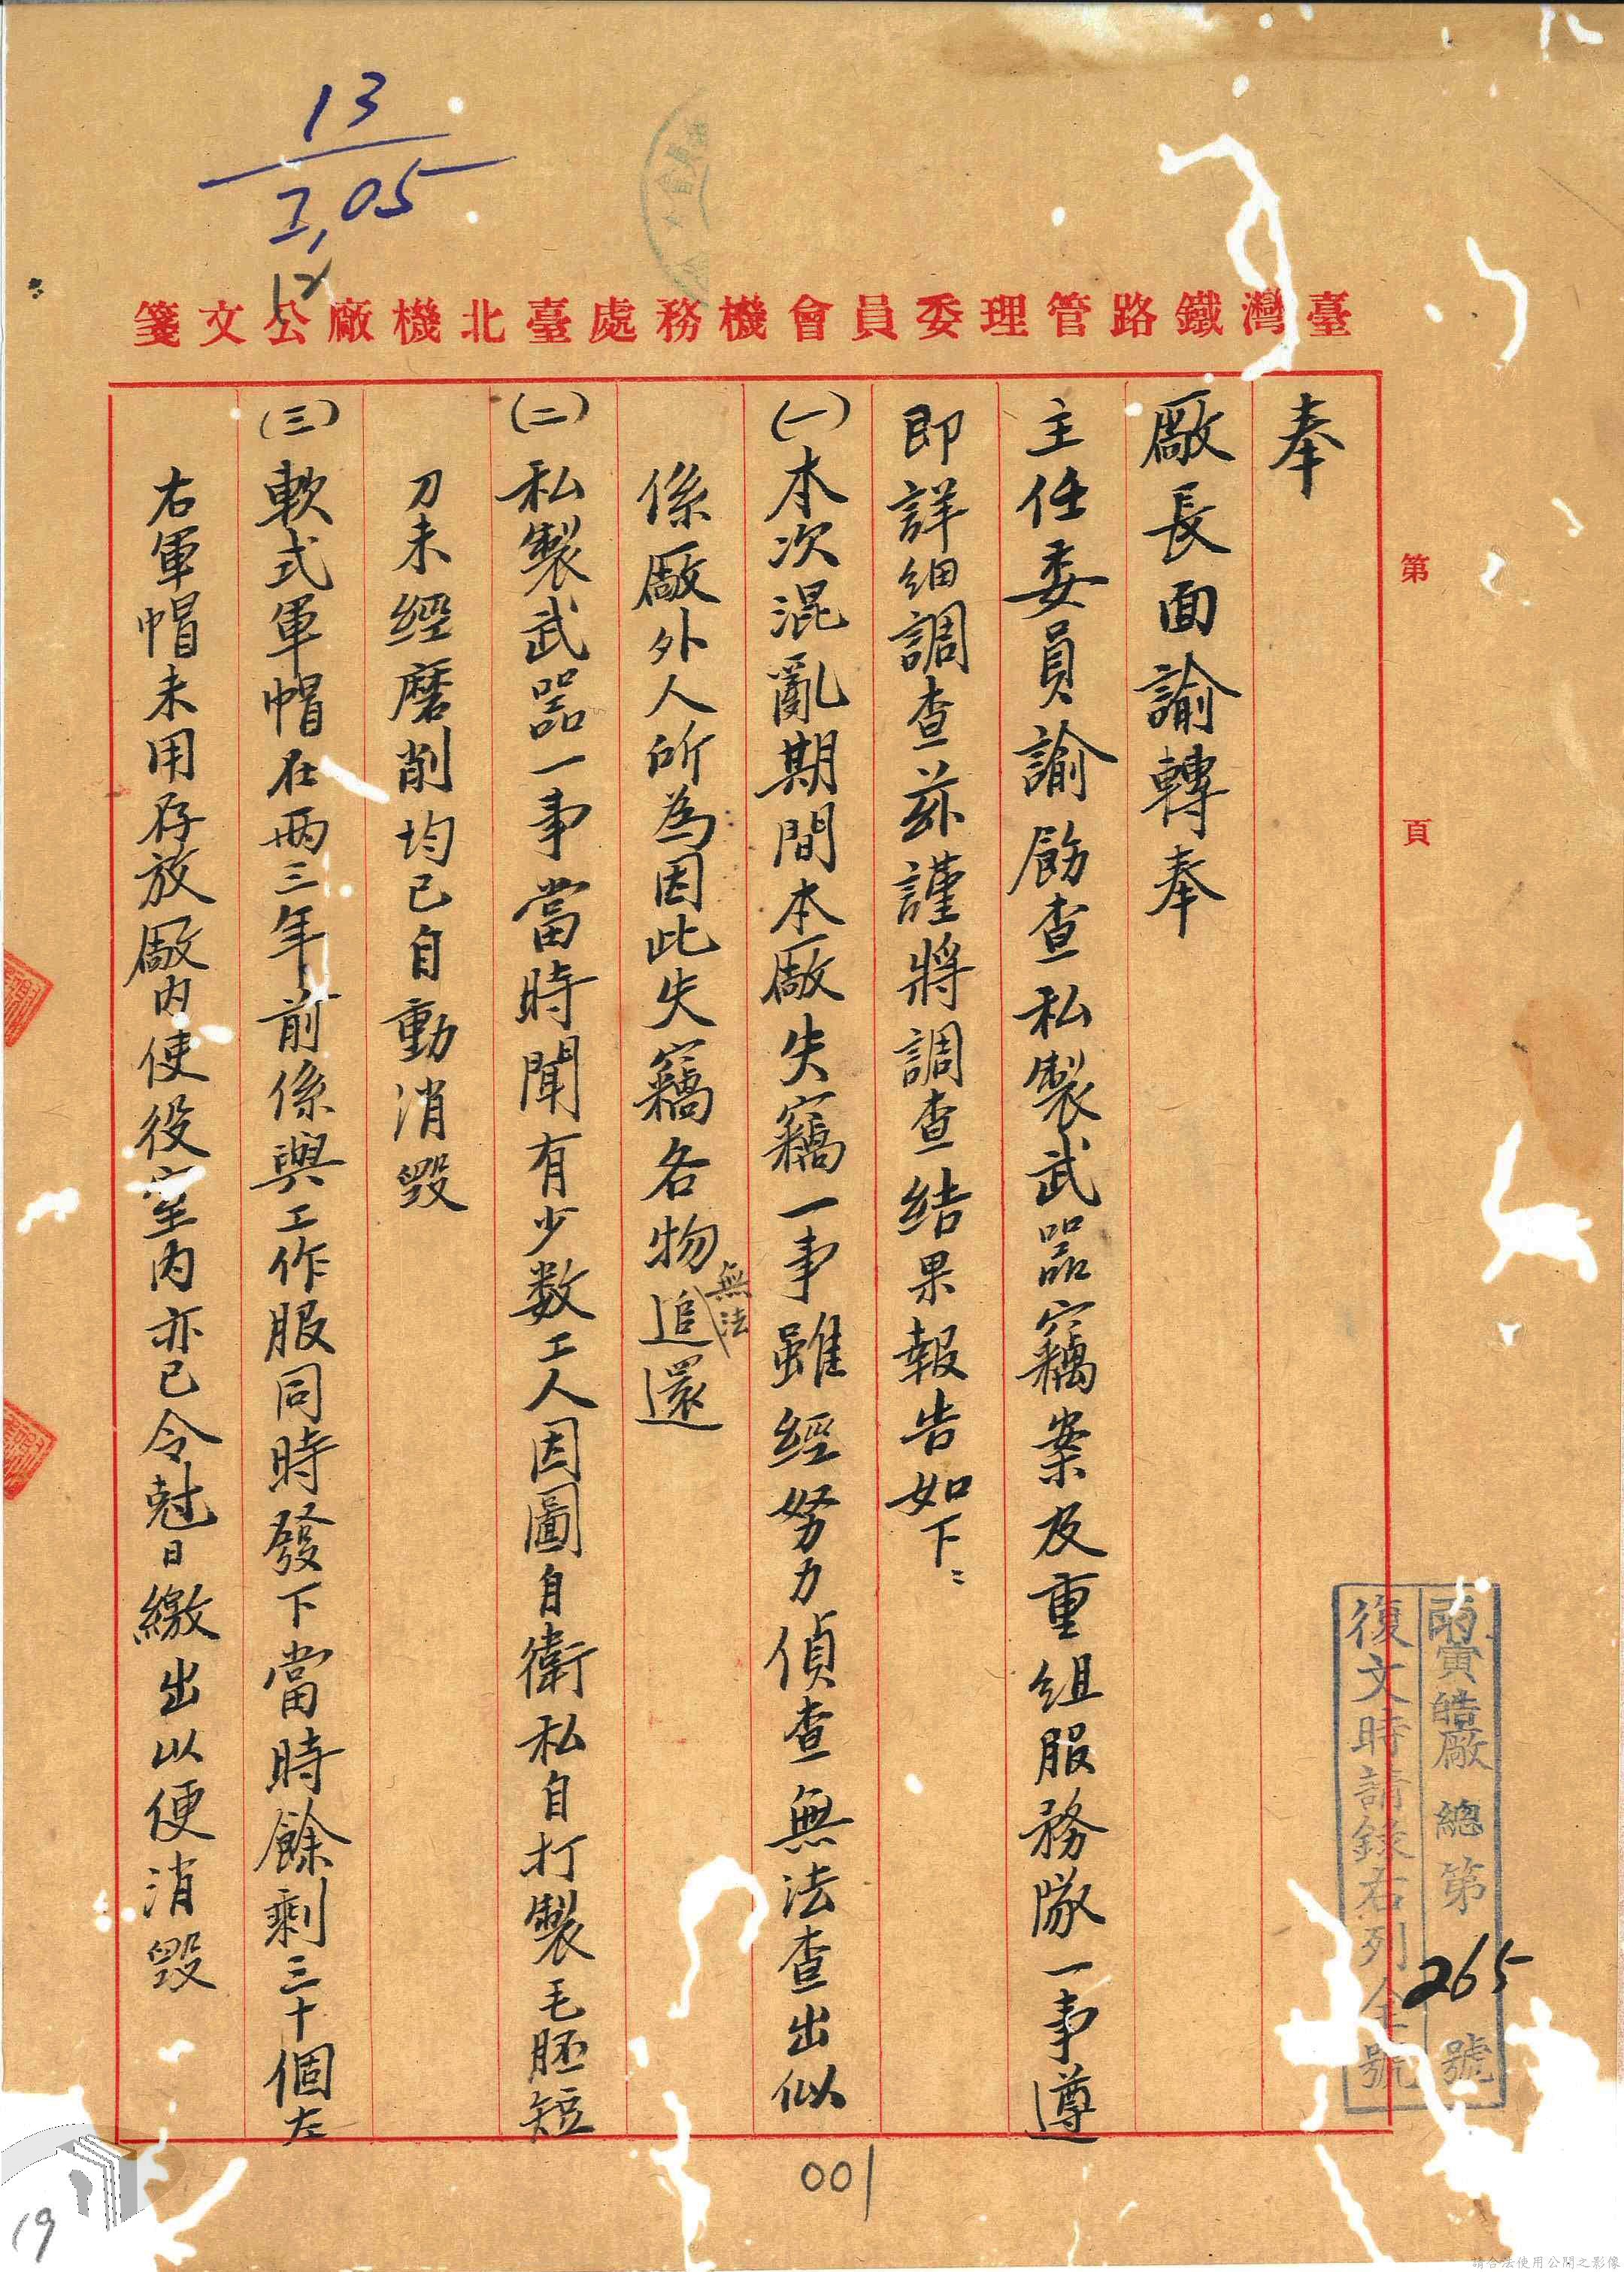 13
2,05
12
臺灣鐵路管理委員會機務處臺北機廠公文箋
第
頁
寅皓廠總第265號
復文時請錄右列全號
奉
廠長面諭轉奉
主任委員諭飭查私製武器竊案及重組服務隊一事遵
即詳細調查茲謹將調查結果報告如下：
(一)本次混亂期間本廠失竊一事雖經努力偵查無法查出似
係廠外人所為因此失竊各物無法追還
(二)私製武器一事當時聞有少数工人因圖自衛私自打製毛胚短
刀未經磨削均已自動消毀
(三)軟式軍帽在兩三年前係與工作服同時發下當時餘剩三十個左
右軍帽未用存放廠內使役室內亦已令尅日繳出以便消毀
001
19
請合法使用公開之影像